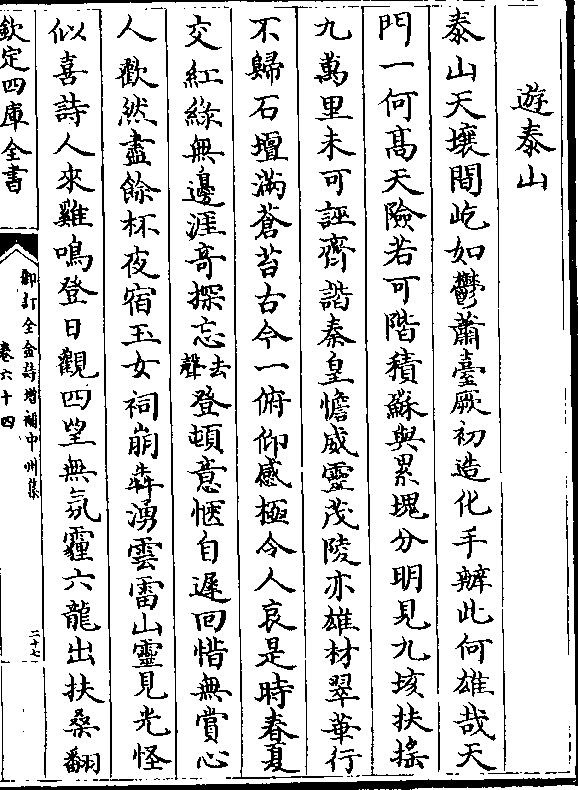 遊泰山
泰山天壤間屹如鬱蕭臺厥初造化手辦此何雄哉天
門一何髙天險若可階積蘇與累塊分明見九垓扶搖
九萬里未可誣齊諧秦皇憺威靈茂陵亦雄材翠華行
不歸石壇滿蒼苔古今一俯仰感極令人哀是時春夏
交紅緑無邊涯竒探忘去聲登頓意愜自遲回惜無賞心
人歡然盡餘杯夜宿玉女祠崩犇湧雲雷山靈見光怪
似喜詩人來雞鳴登日觀四望無氛霾六龍出扶桑翻
欽定四庫全書
御訂全金詩增補中州集
卷六十四
二十七